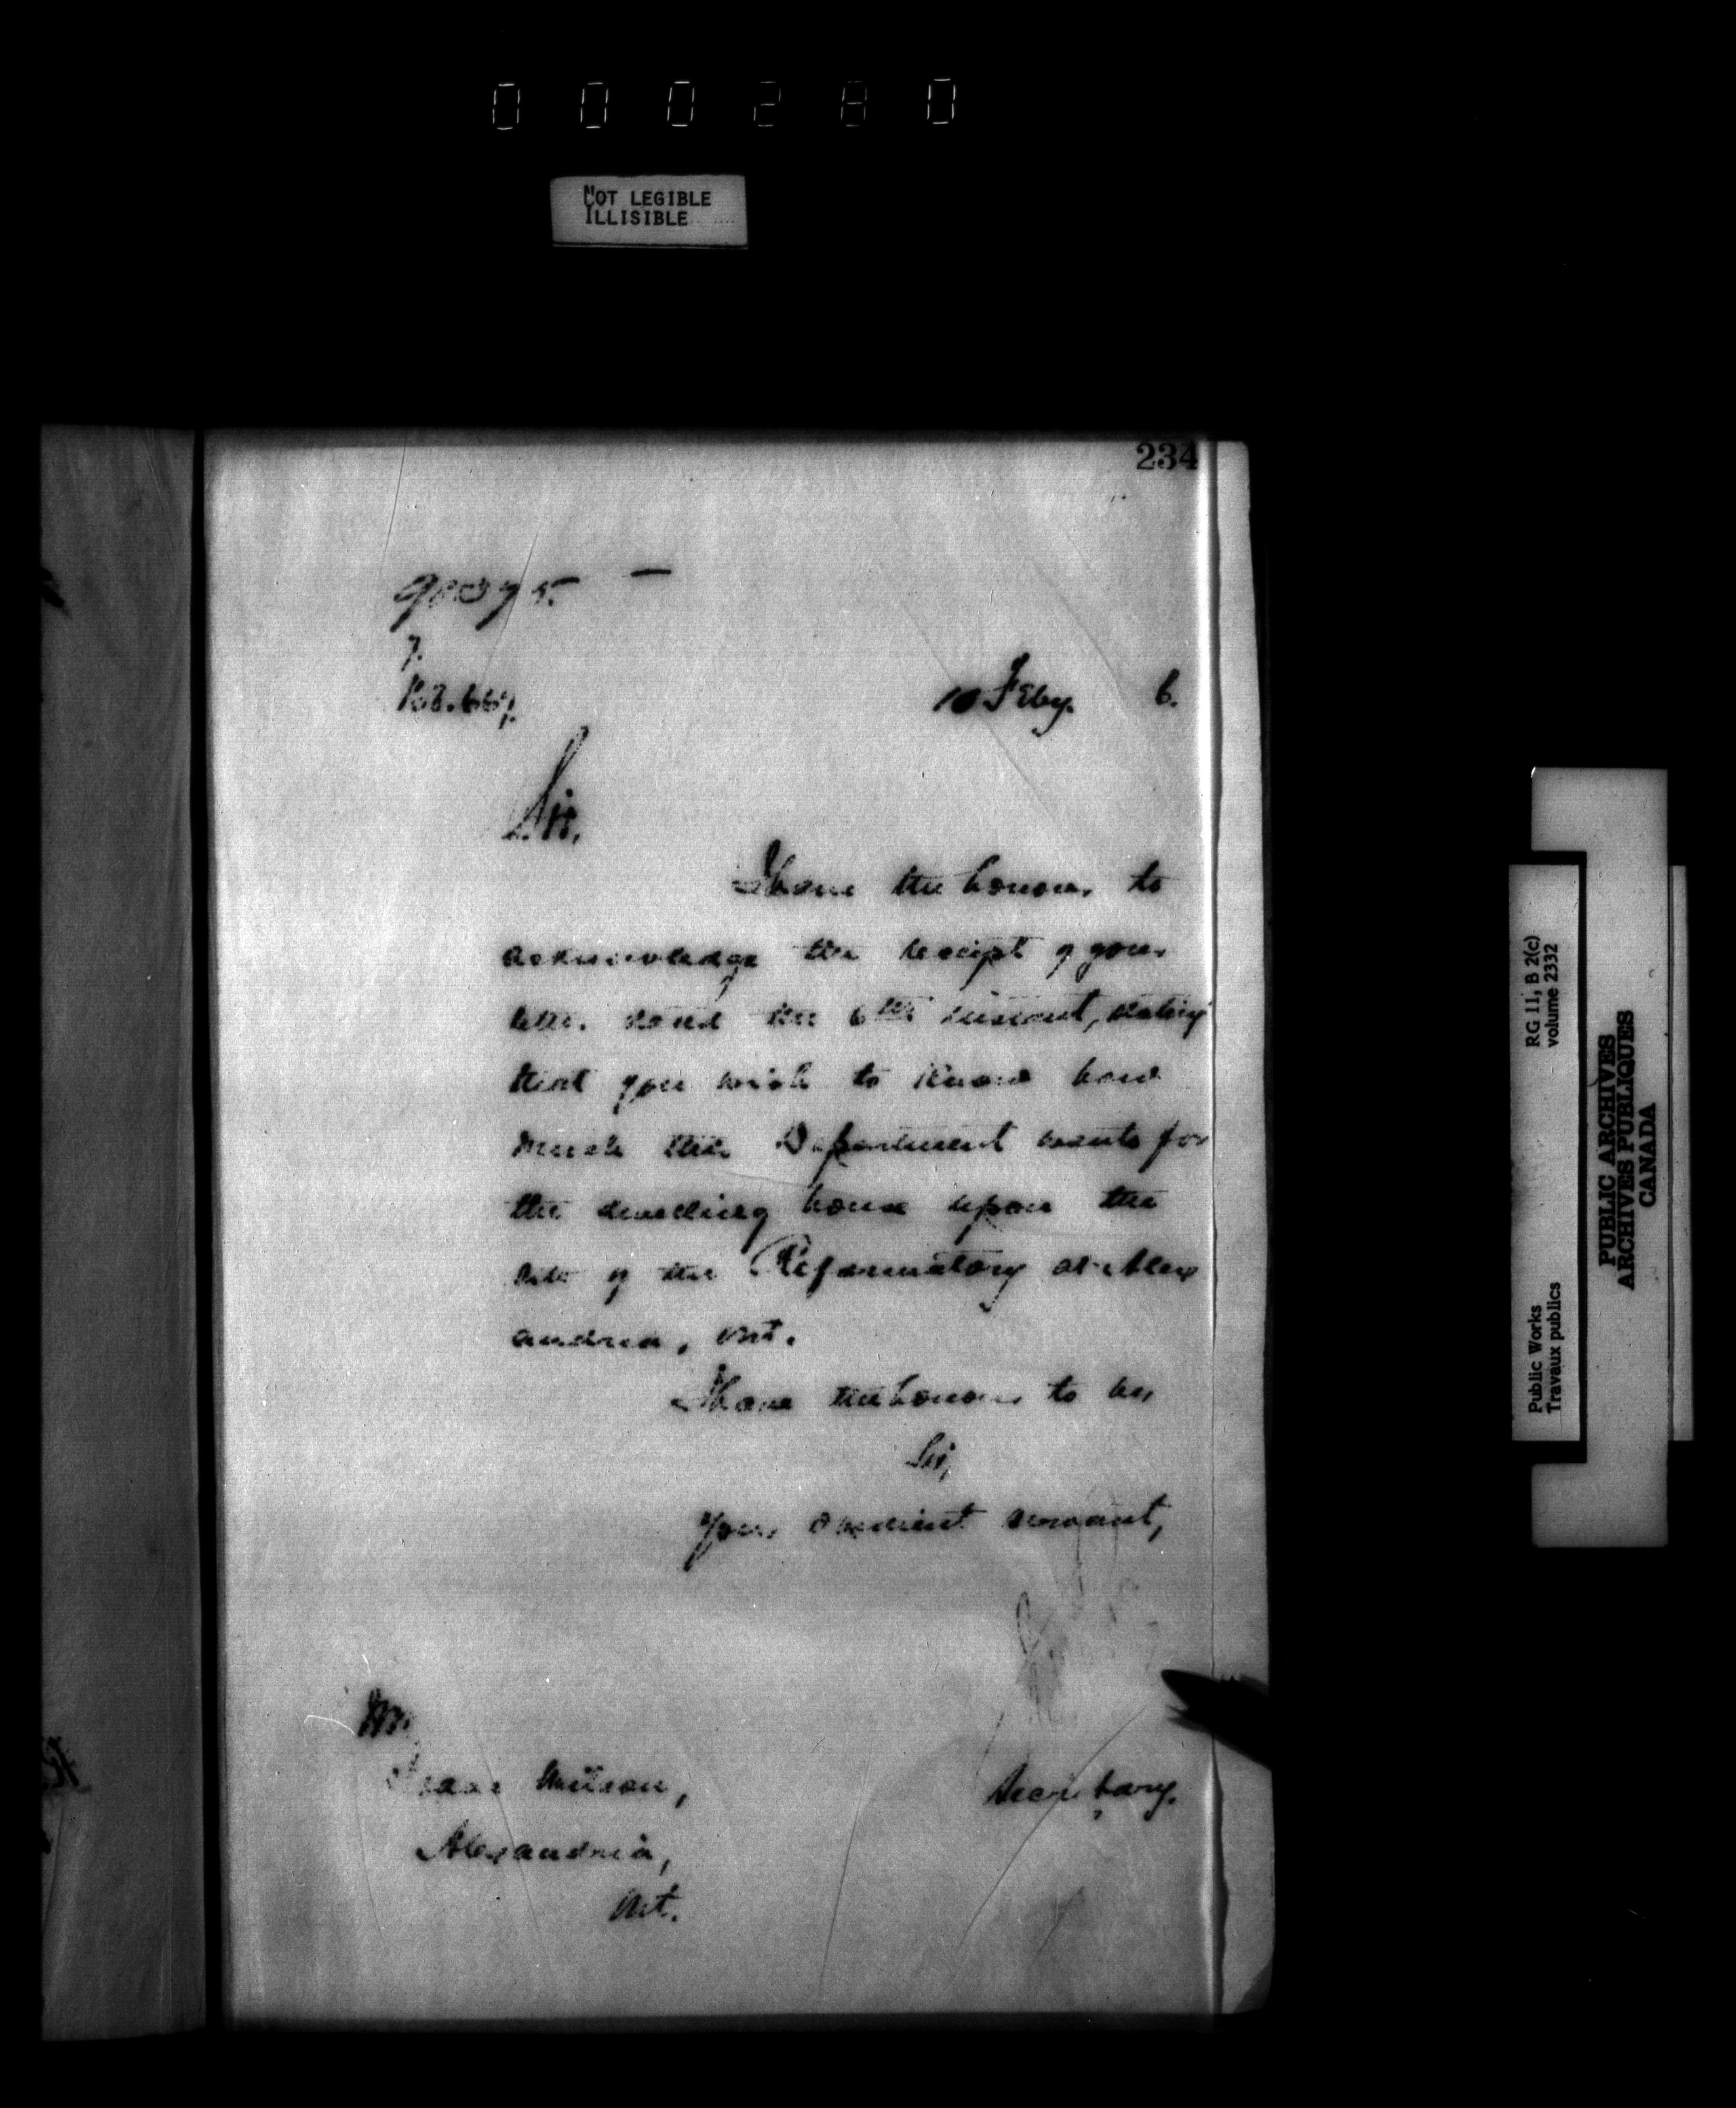 000280
NOT LEGIBLE
ILLISIBLE
234
10 Feby. 6.
Sir,
I have the honour to
acknowledge the receipt of your
letter dated the 6th instant, stating
that you wish to know how
much this Department wants for
the dwelling house upon the
site of the Reformatory at Alex
andria, Ont.
I have the honour to be,
Sir,
Your obedient servant,
Mr.
Isaac Wilson,
Secretary.
Alexandria,
Ont.
RG 11, B 2(c)
volume 2332
Public Works
Travaux publics
PUBLIC ARCHIVES
ARCHIVES PUBLIQUES
CANADA